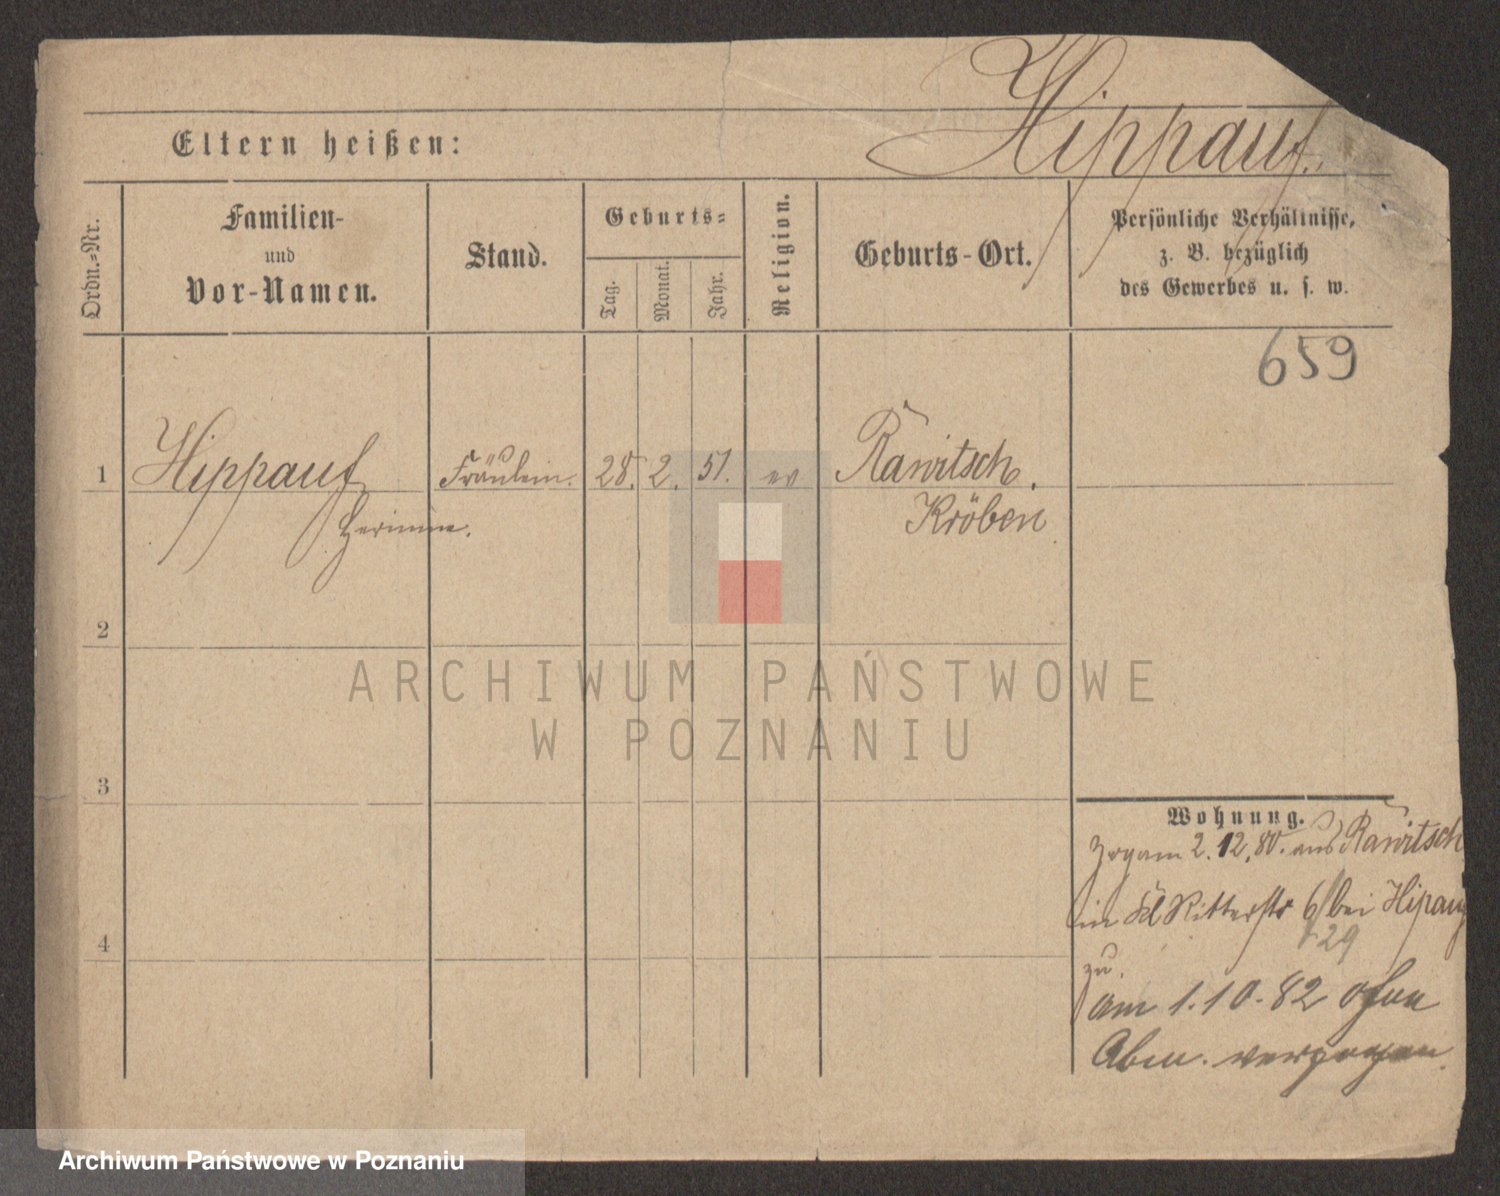 Hippauf.
Eltern heißen:
Ordn.=Nr.
Familien-
und
Vor-Namen.
Stand.
Geburts=
Tag.
Monat.
Jahr.
Religion.
Geburts-Ort.
Persönliche Verhältnisse,
z. B. bezüglich
des Gewerbes u. s. w.
659
1 Hippauf Fräulein. 28. 2. 51. ev Rawitsch.
Kröben
2
3
4
Wohnung.
Zog am 2.12.80. aus Rawitsch
in Kl Ritterstr 6 bei Hipauf
29
zu.
am 1.10.82 ohne
Abm. verzogen.
ARCHIWUM PAŃSTWOWE
W POZNANIU
Archiwum Państwowe w Poznaniu